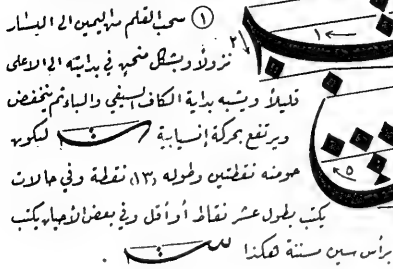 ① سحب القلم من اليمين إلى اليسار
نزولاً وبشكل منحنٍ في بدايته إلى الأعلى
قليلاً ويشبه بداية الكاف السيفي والباء ثم ينخفض
ويرتفع بحركة إنسيابية ليكون
حوضه نقطتين وطوله (١٣) نقطة وفي حالات
يكتب بطول عشر نقاط أو أقل وفي بعض الأحيان يكتب
برأس سين مسننة هكذا .
١
٢
٥